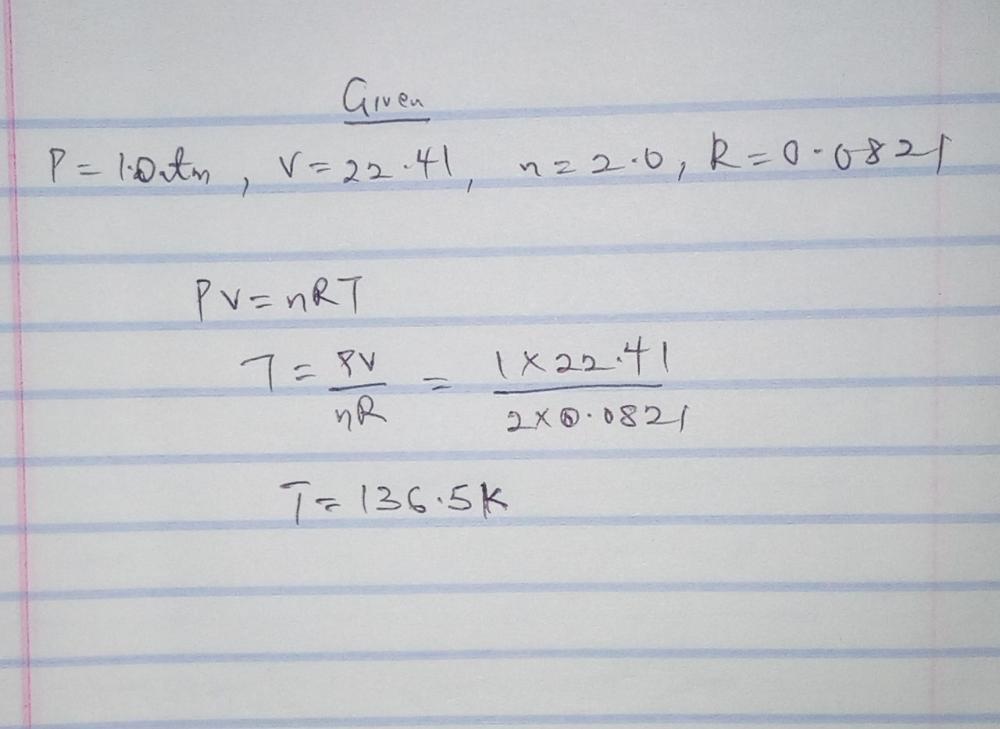 Given
P = 1.0 atm, V = 22.41, n = 2.0, R = 0.0821
PV = nRT
T = PV/nR = 1 × 22.41/2 × 0.0821
T = 136.5K